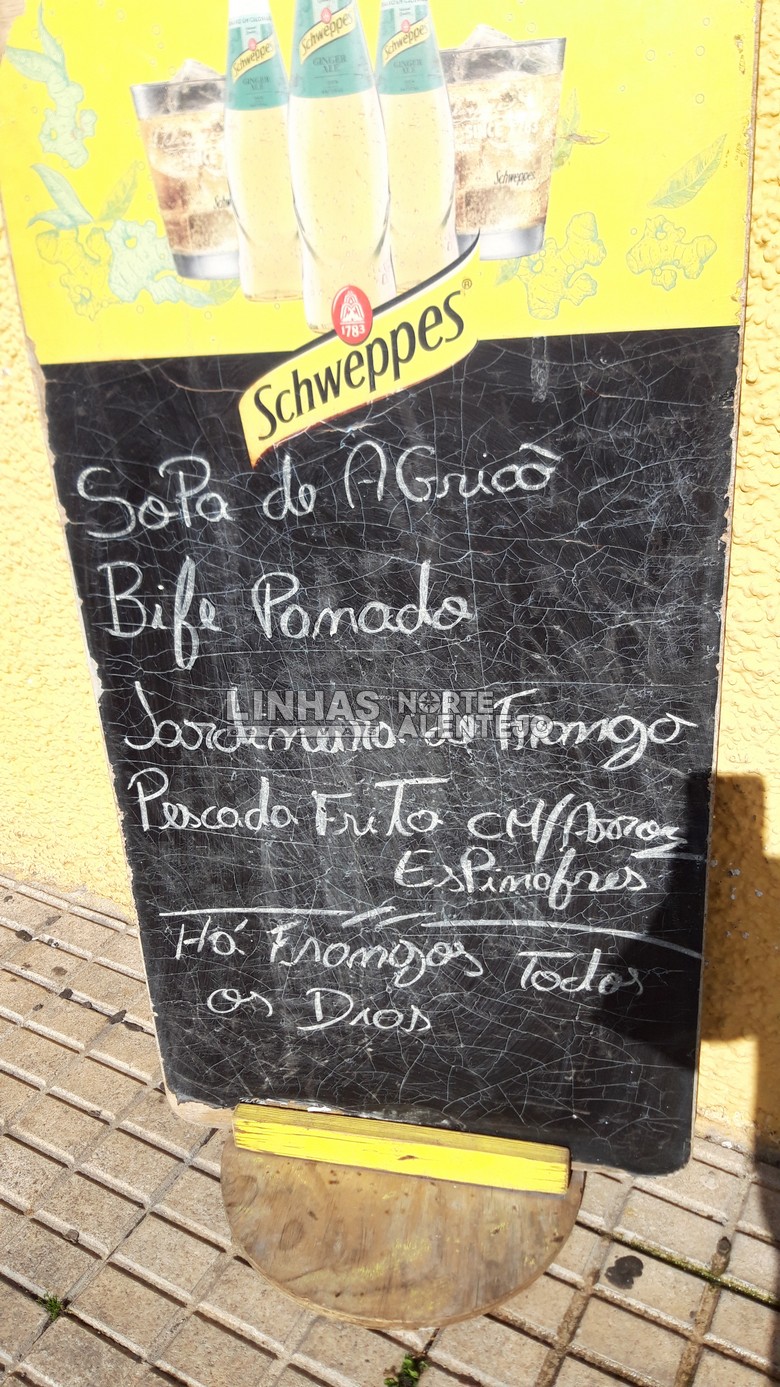 Schweppes
GINGER ALE
Schweppes
GINGER ALE
Schweppes
GINGER ALE
Schweppes
1783
Schweppes®
Sopa de Agrião
Bife Panado
Jardineira de Frango
LINHAS NORTE ALENTEJO
Pescada Frita cm/Arroz
Espinafres
Há Frangos Todos
os Dias